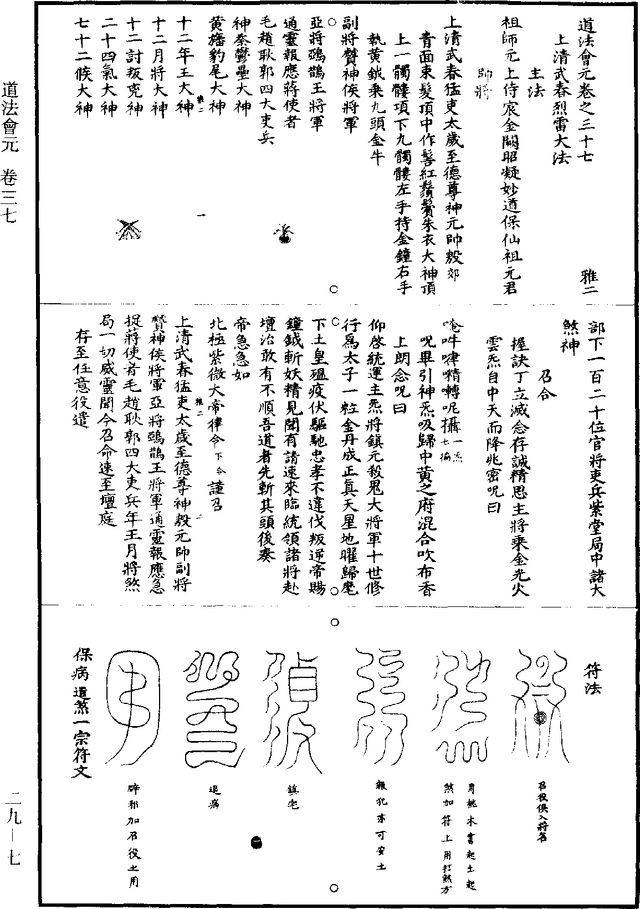 道法會元卷之三十七
雅二
上清武春烈雷大法
主法
祖師元上侍宸金闕昭凝妙道保仙祖元君
帥將
上清武春猛吏太歲至德尊神元帥殷郊
青面束髮頂中作髻紅鬚鬢朱衣大神頂
上一髑髏項下九髑髏左手持金鐘右手
執黃鉞乘九頭金牛
副將贊神侯將軍
亞將鴟鵲王將軍
通靈報應將使者
毛趙耿郭四大吏兵
神荼鬱壘大神
黃旛豹尾大神
十二年王大神
十二月將大神
十二討叛究神
二十四氣大神
七十二候大神
部下一百二十位官將吏兵紫堂局中諸大
煞神
召合
握訣丁立滅念存誠精思主將乘金光火
雲炁自中天而降兆密呪曰
唵吽㖀㘑囀呢攝一炁七遍
呪畢引神炁吸歸中黃之府混合吹布香
上朗念呪曰
仰啓統運主炁將鎮元殺鬼大將軍十世修
行爲太子一粒金丹成正真天星地曜歸麾
下土皇瘟疫伏驅馳忠孝不違伐叛逆帝賜
鐘鉞斬妖精見聞有請速來臨統領諸將赴
壇治敢有不順吾道者先斬其頭後奏
帝急急如
北極紫微大帝律令下令謹召
上清武春猛吏太歲至德尊神殷元帥副將
贊神侯將軍亞將鴟鵲王將軍通靈報應急
捉將使者毛趙耿郭四大吏兵年王月將煞
局一切威靈聞今召命速至壇庭
存至任意役遣
符法
召役俱入將名
用桃木書起土起
煞加符上用打煞方
報犯亦可安土
鎮宅
退病
辟邪加召役之用
保病遣煞一宗符文
道法會元 卷三七
二九—七